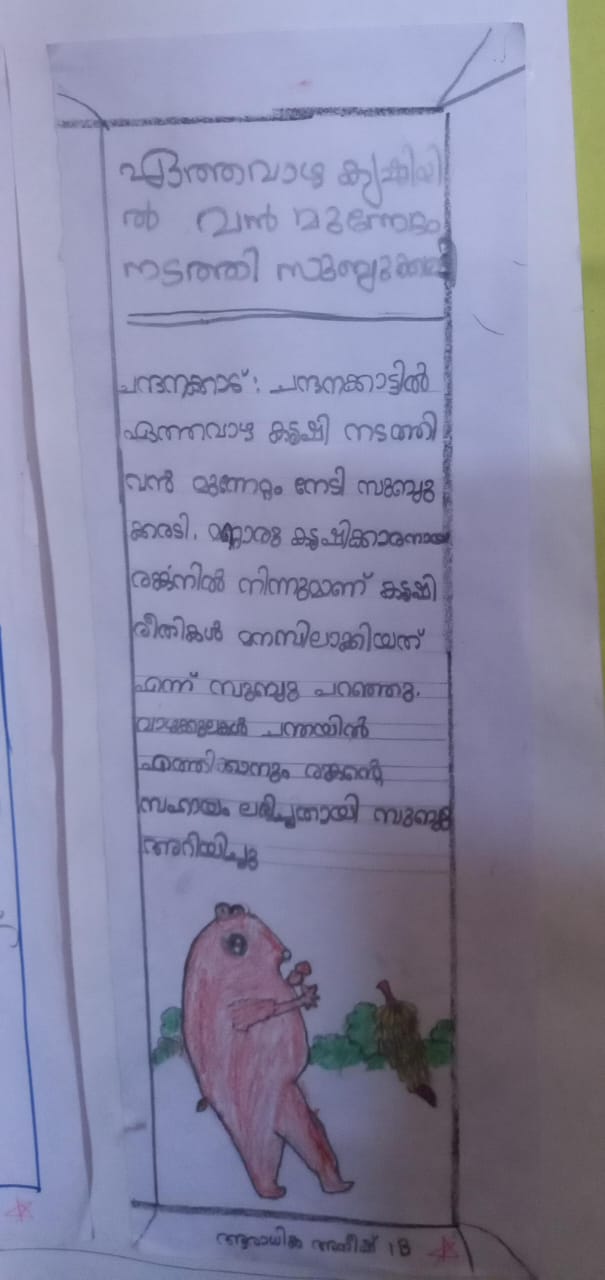 ഏത്തവാഴ കൃഷിയി
ൽ വൻ മുന്നേറ്റം
നടത്തി സുബ്ബുക്കരടി
ചന്ദനക്കാട് : ചന്ദനക്കാട്ടിൽ
ഏത്തവാഴ കൃഷി നടത്തി
വൻ മുന്നേറ്റം നേടി സുബ്ബു
ക്കരടി. കൃഷിക്കാരനായ
രങ്കനിൽ നിന്നുമാണ് കൃഷി
രീതികൾ മനസിലാക്കിയത്
എന്ന് സുബ്ബു പറഞ്ഞു.
വാഴക്കുലകൾ ചന്തയിൽ
എത്തിക്കാനും രങ്കന്റെ
സഹായം ലഭിച്ചതായി സുബ്ബു
അറിയിച്ചു
1B